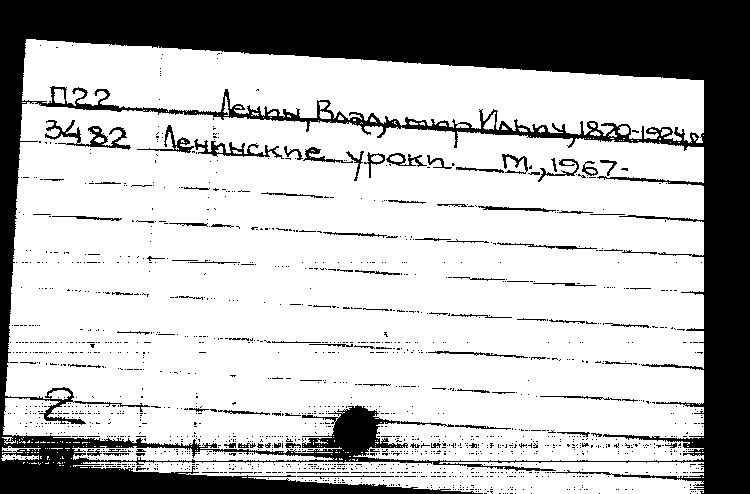 П22 Ленин, Владимир Ильич, 1870-1924,
3482 Ленинские уроки. М., 1967-
2